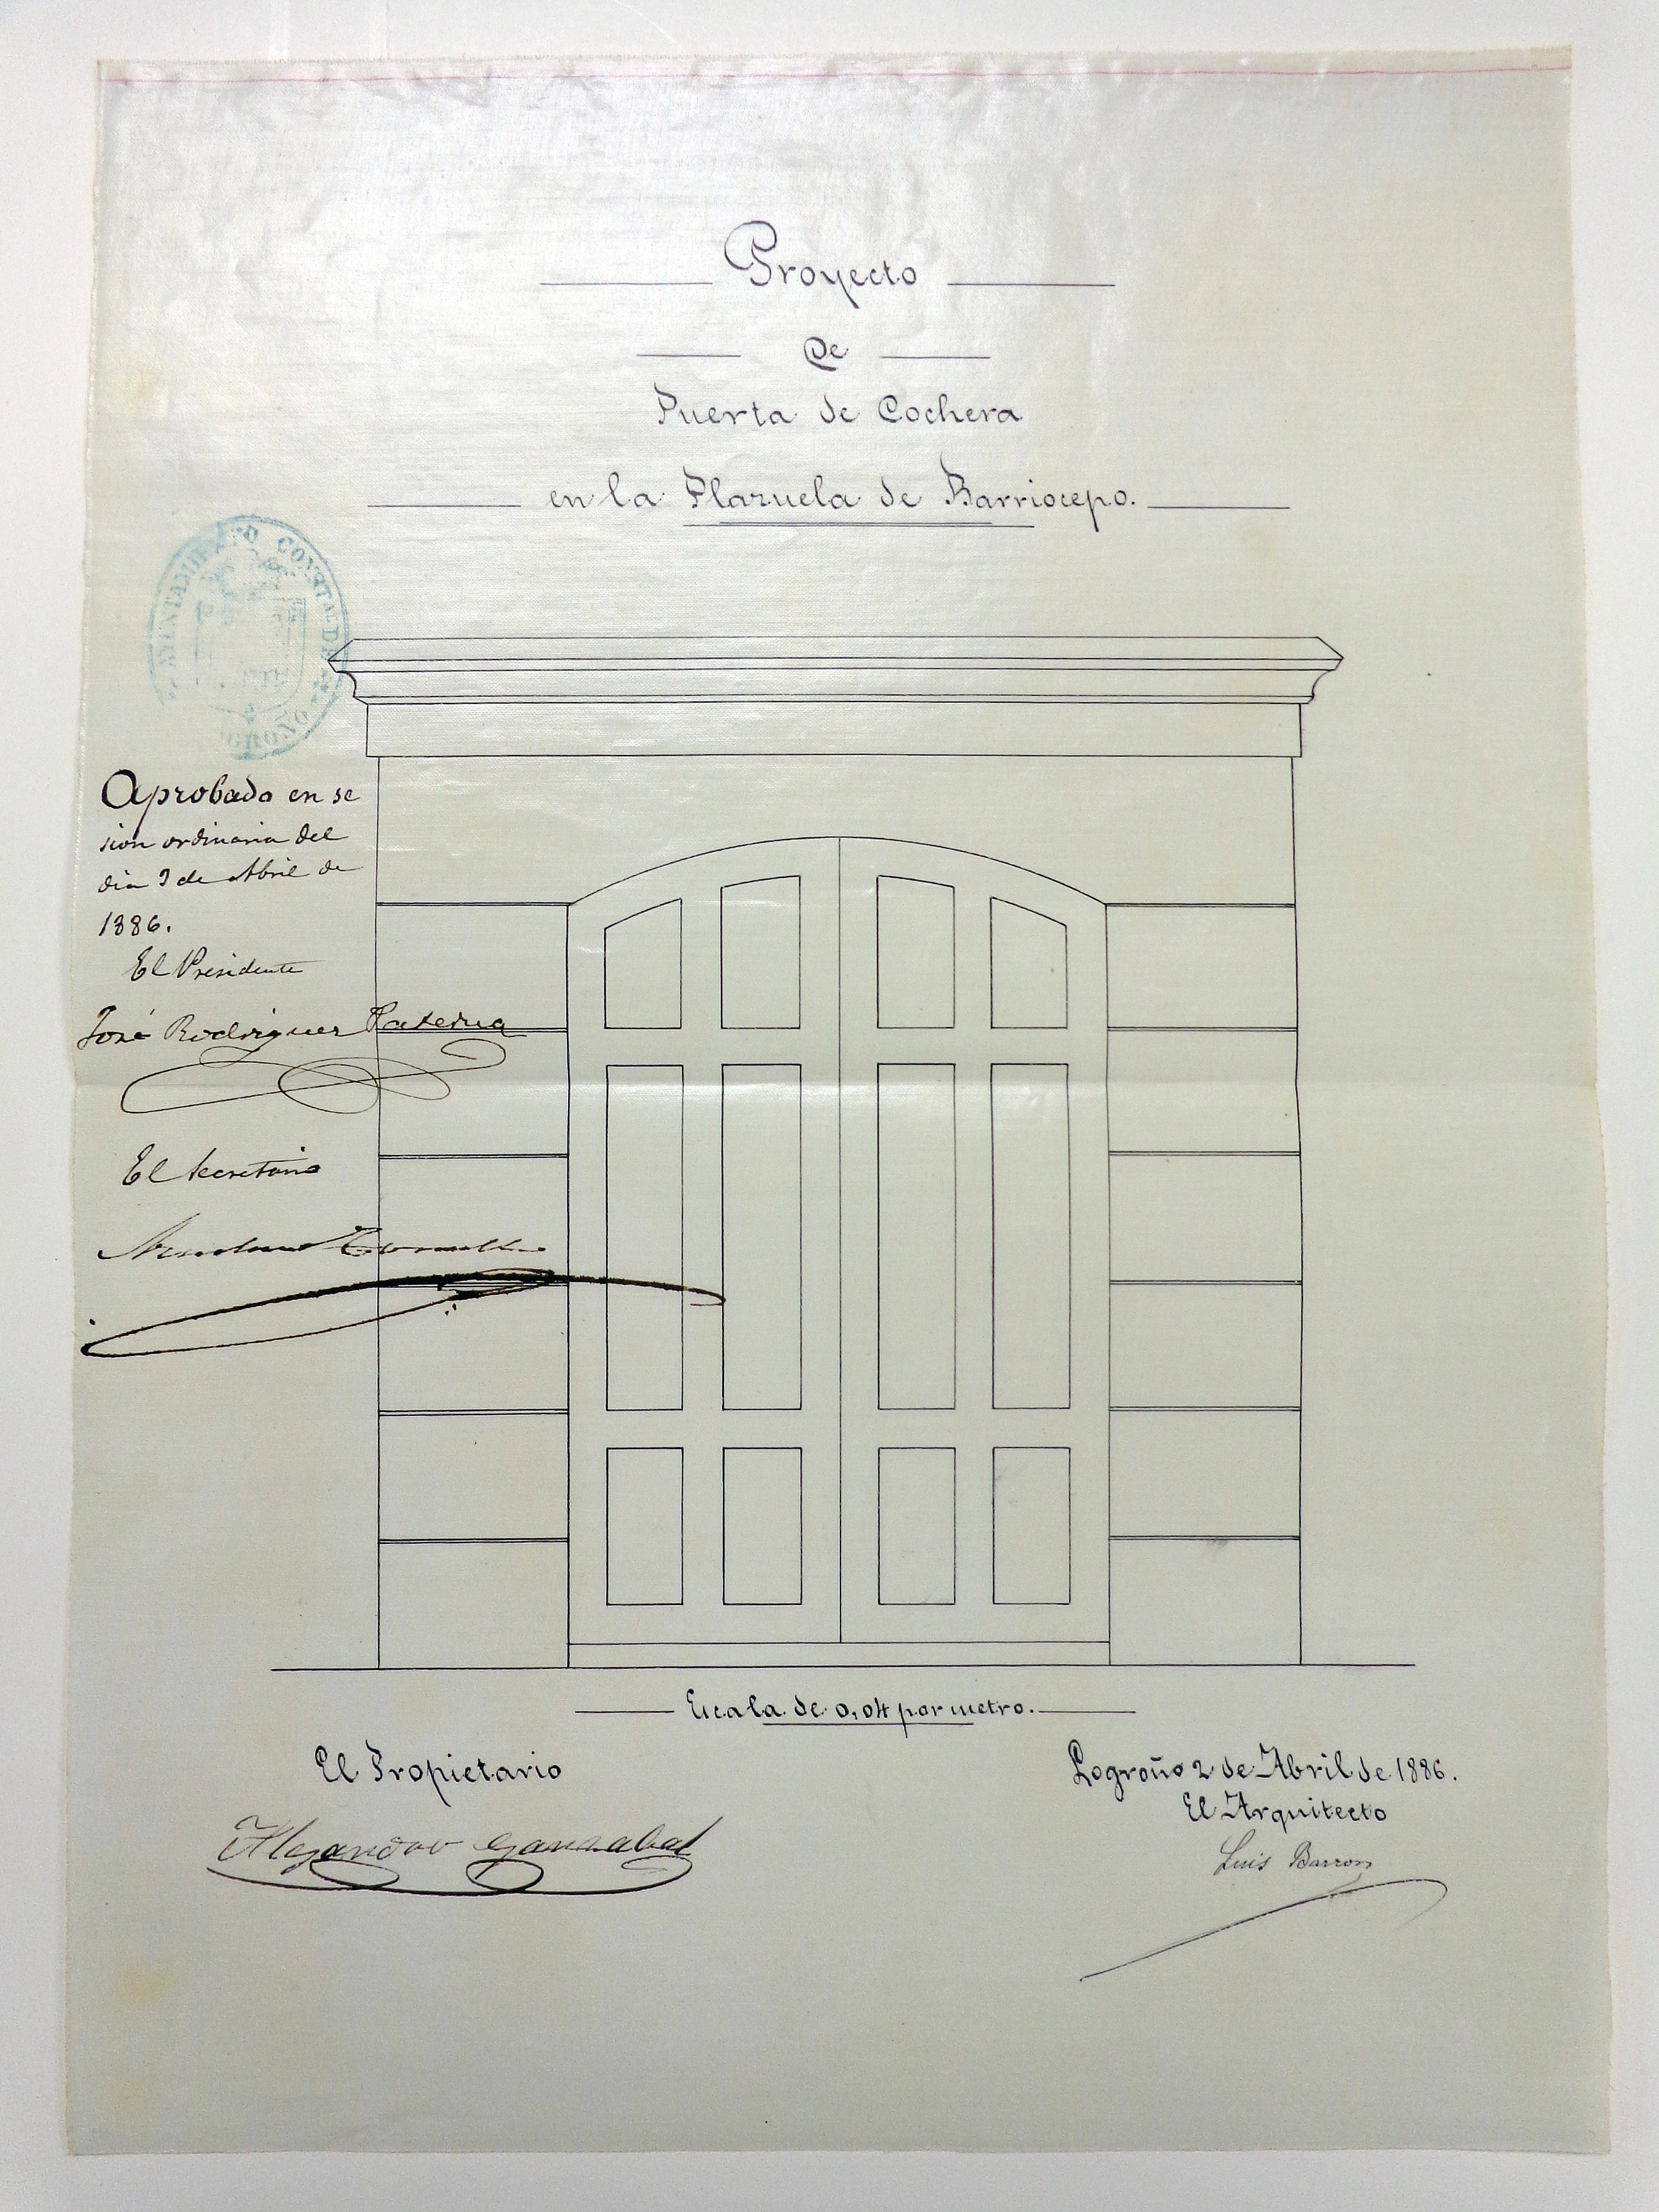 Proyecto
De
Puerta de Cochera
en la Plazuela de Barriocepo.
AYUNTAMIENTO CONST.AL DE LOGROÑO
Aprobado en se
sion ordinaria del
dia 3 de Abril de
1886.
El Presidente
José Rodriguez Paterna
El Secretario
Escala de 0,04 por metro.
El Propietario
Alejandro
Logroño 2 de Abril de 1886.
El Arquitecto
Luis Barron